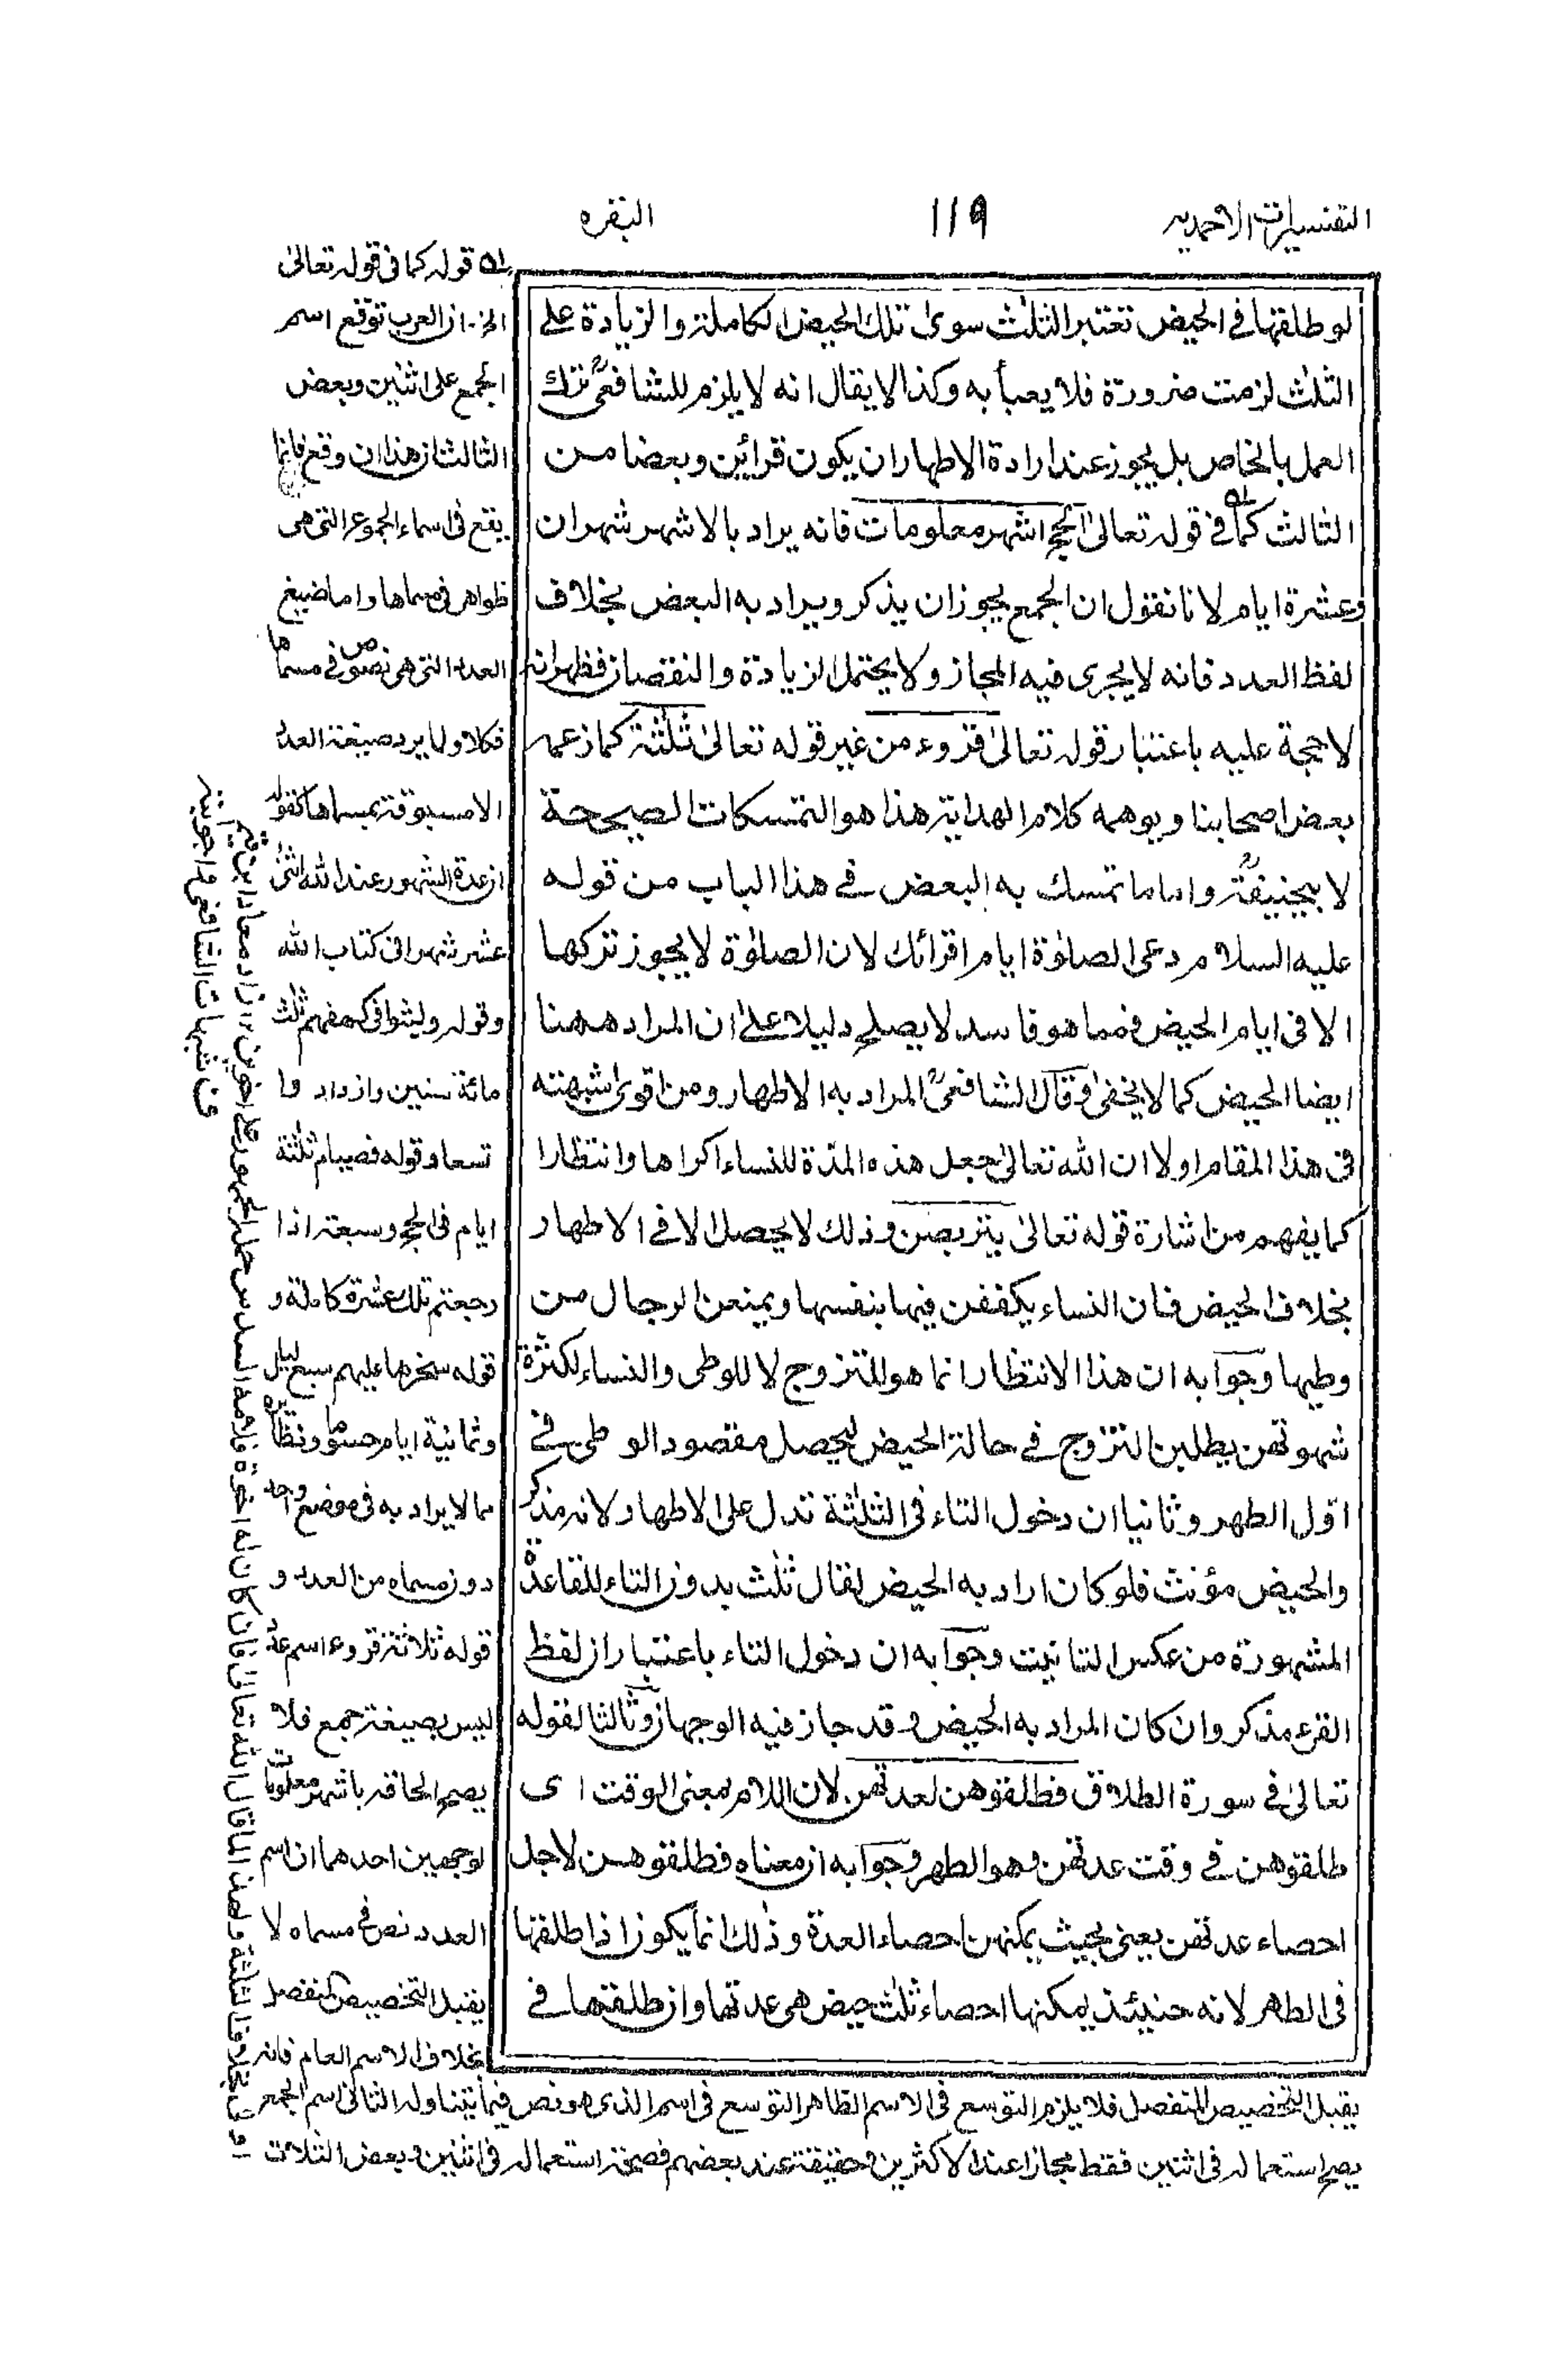 التفسيرات الاحمديه
١١٩
البقره
لو طلقتها فى الحيض تعتبر الثلث سوى تلك الحيض الكاملة والزيادة على
الثلث لزمت ضرورة فلا يعبأ به وكذا لا يقال انه لا يلزم للشافعىؒ ترك
العمل بالخاص بل يجوز عند ارادة الاطهار ان يكون قرائين وبعضا من
الثالث كما فى قوله تعالى الحج اشهر معلومات فانه يراد بالاشهر شهران
وعشرة ايام لانا نقول ان الجمع يجوز ان يذكر ويراد به البعض بخلاف
لفظ العدد فانه لا يجرى فيه المجاز ولا يحتمل الزيادة والنقصان فظهر انه
لا حجة عليه باعتبار قوله تعالى قروء من غير قوله تعالى ثلثة كما زعمه
بعض اصحابنا ويوهمه كلام الهداية هذا هو التمسكات الصحيحة
لابيحنيفةؒ واما ما تمسك به البعض فى هذا الباب من قوله
عليه السلام دعى الصلوة ايام اقرائك لان الصلوة لا يجوز تركها
الا فى ايام الحيض فمما هو فاسد لا يصلح دليلا على ان المراد ههنا
ايضا الحيض كما لا يخفى وقال الشافعىؒ المراد به الاطهار ومن اقوى شبهته
فى هذا المقام اولا ان الله تعالى جعل هذه المدة للنساء اكراها وانتظارا
كما يفهم من اشارة قوله تعالى يتربصن وذلك لا يحصل الا فى الاطهار
بخلاف الحيض فان النساء يكففن فيها بنفسها ويمنعن الرجال من
وطيها وجوابه ان هذا الانتظار انما هو للتزوج لا للوطى والنساء لكثرة
شهوتهن يطلبن التزوج فى حالة الحيض ليحصل مقصود الوطى فى
اول الطهر وثانيا ان دخول التاء فى الثلثة تدل على الاطهار لانه مذكر
والحيض مؤنث فلو كان اراد به الحيض لقال ثلث بدون التاء للقاعدة
المشهورة من عكس التانيث وجوابه ان دخول التاء باعتبار ان لفظ
القرء مذكر وان كان المراد به الحيض وقد جاز فيه الوجهان وثالثا لقوله
تعالى فى سورة الطلاق فطلقوهن لعدتهن لان اللام لمعنى الوقت اى
طلقوهن فى وقت عدتهن وهو الطهر وجوابه ان معناه فطلقوهن لاجل
احصاء عدتهن يعنى بحيث يمكنهن احصاء العدة وذلك انما يكون اذا طلقتها
فى الطهر لانه حينئذ يمكنها احصاء ثلث حيض هى عدتها وان طلقتها فى
له قوله كما فى قوله تعالى
الخ. ان العرب توقع اسم
الجمع على اثنين وبعض
الثالث ان هذا ان وقع فانما
يقع فى اسماء الجموع التى هى
ظواهر فى مسماها واما صيغ
العدد التى هى نصوص فى مسماها
فكلا ولم يرد صيغة العدد
الا مسبوقة بمسماها كقوله
ان عدة الشهور عند الله اثنى
عشر شهرا فى كتاب الله
وقوله ولبثوا فى كهفهم ثلث
مائة سنين وازدادوا
تسعا وقوله فصيام ثلثة
ايام فى الحج وسبعة اذا
رجعتم تلك عشرة كاملة و
قوله سخرها عليهم سبع ليال
وثمانية ايام حسوما ونظائره
مما لا يراد به فى موضع واحد
دون مسماه من العدد و
قوله ثلاثة قروء اسم عدد
ليس بصيغة جمع فلا
يصح الحاقه باشهر معلومات
لوجهين احدهما ان اسم
العدد نص فى مسماه لا
يقبل التخصيص المنفصل
بخلاف الاسم العام فانه
يقبل التخصيص المنفصل فلا يلزم التوسع فى الاسم الظاهر التوسع فى اسم الذى هو نص فيما يتناوله الثانى اسم الجمع
يصح استعماله فى اثنين فقط مجازا عند الاكثرين وحقيقة عند بعضهم فصحة استعماله فى اثنين وبعض الثلاث
اولى بخلاف الثلثة ولهذا لما قال الله تعالى فان كان له اخوة فلامه السدس حمله الجمهور على اخوين زاد معاد ابن قيم
فى شبهات الشافعى واجوبته